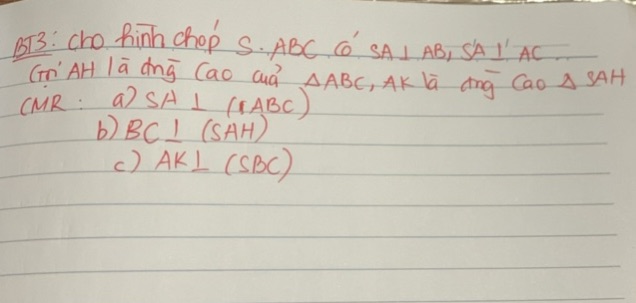 BT3: Cho hình chóp S.ABC có SA ⊥ AB, SA ⊥ AC
Gọi AH là đng̃ cao của △ ABC, AK là đng̃ cao △ SAH
CMR: a) SA ⊥ (ABC)
b) BC ⊥ (SAH)
c) AK ⊥ (SBC)